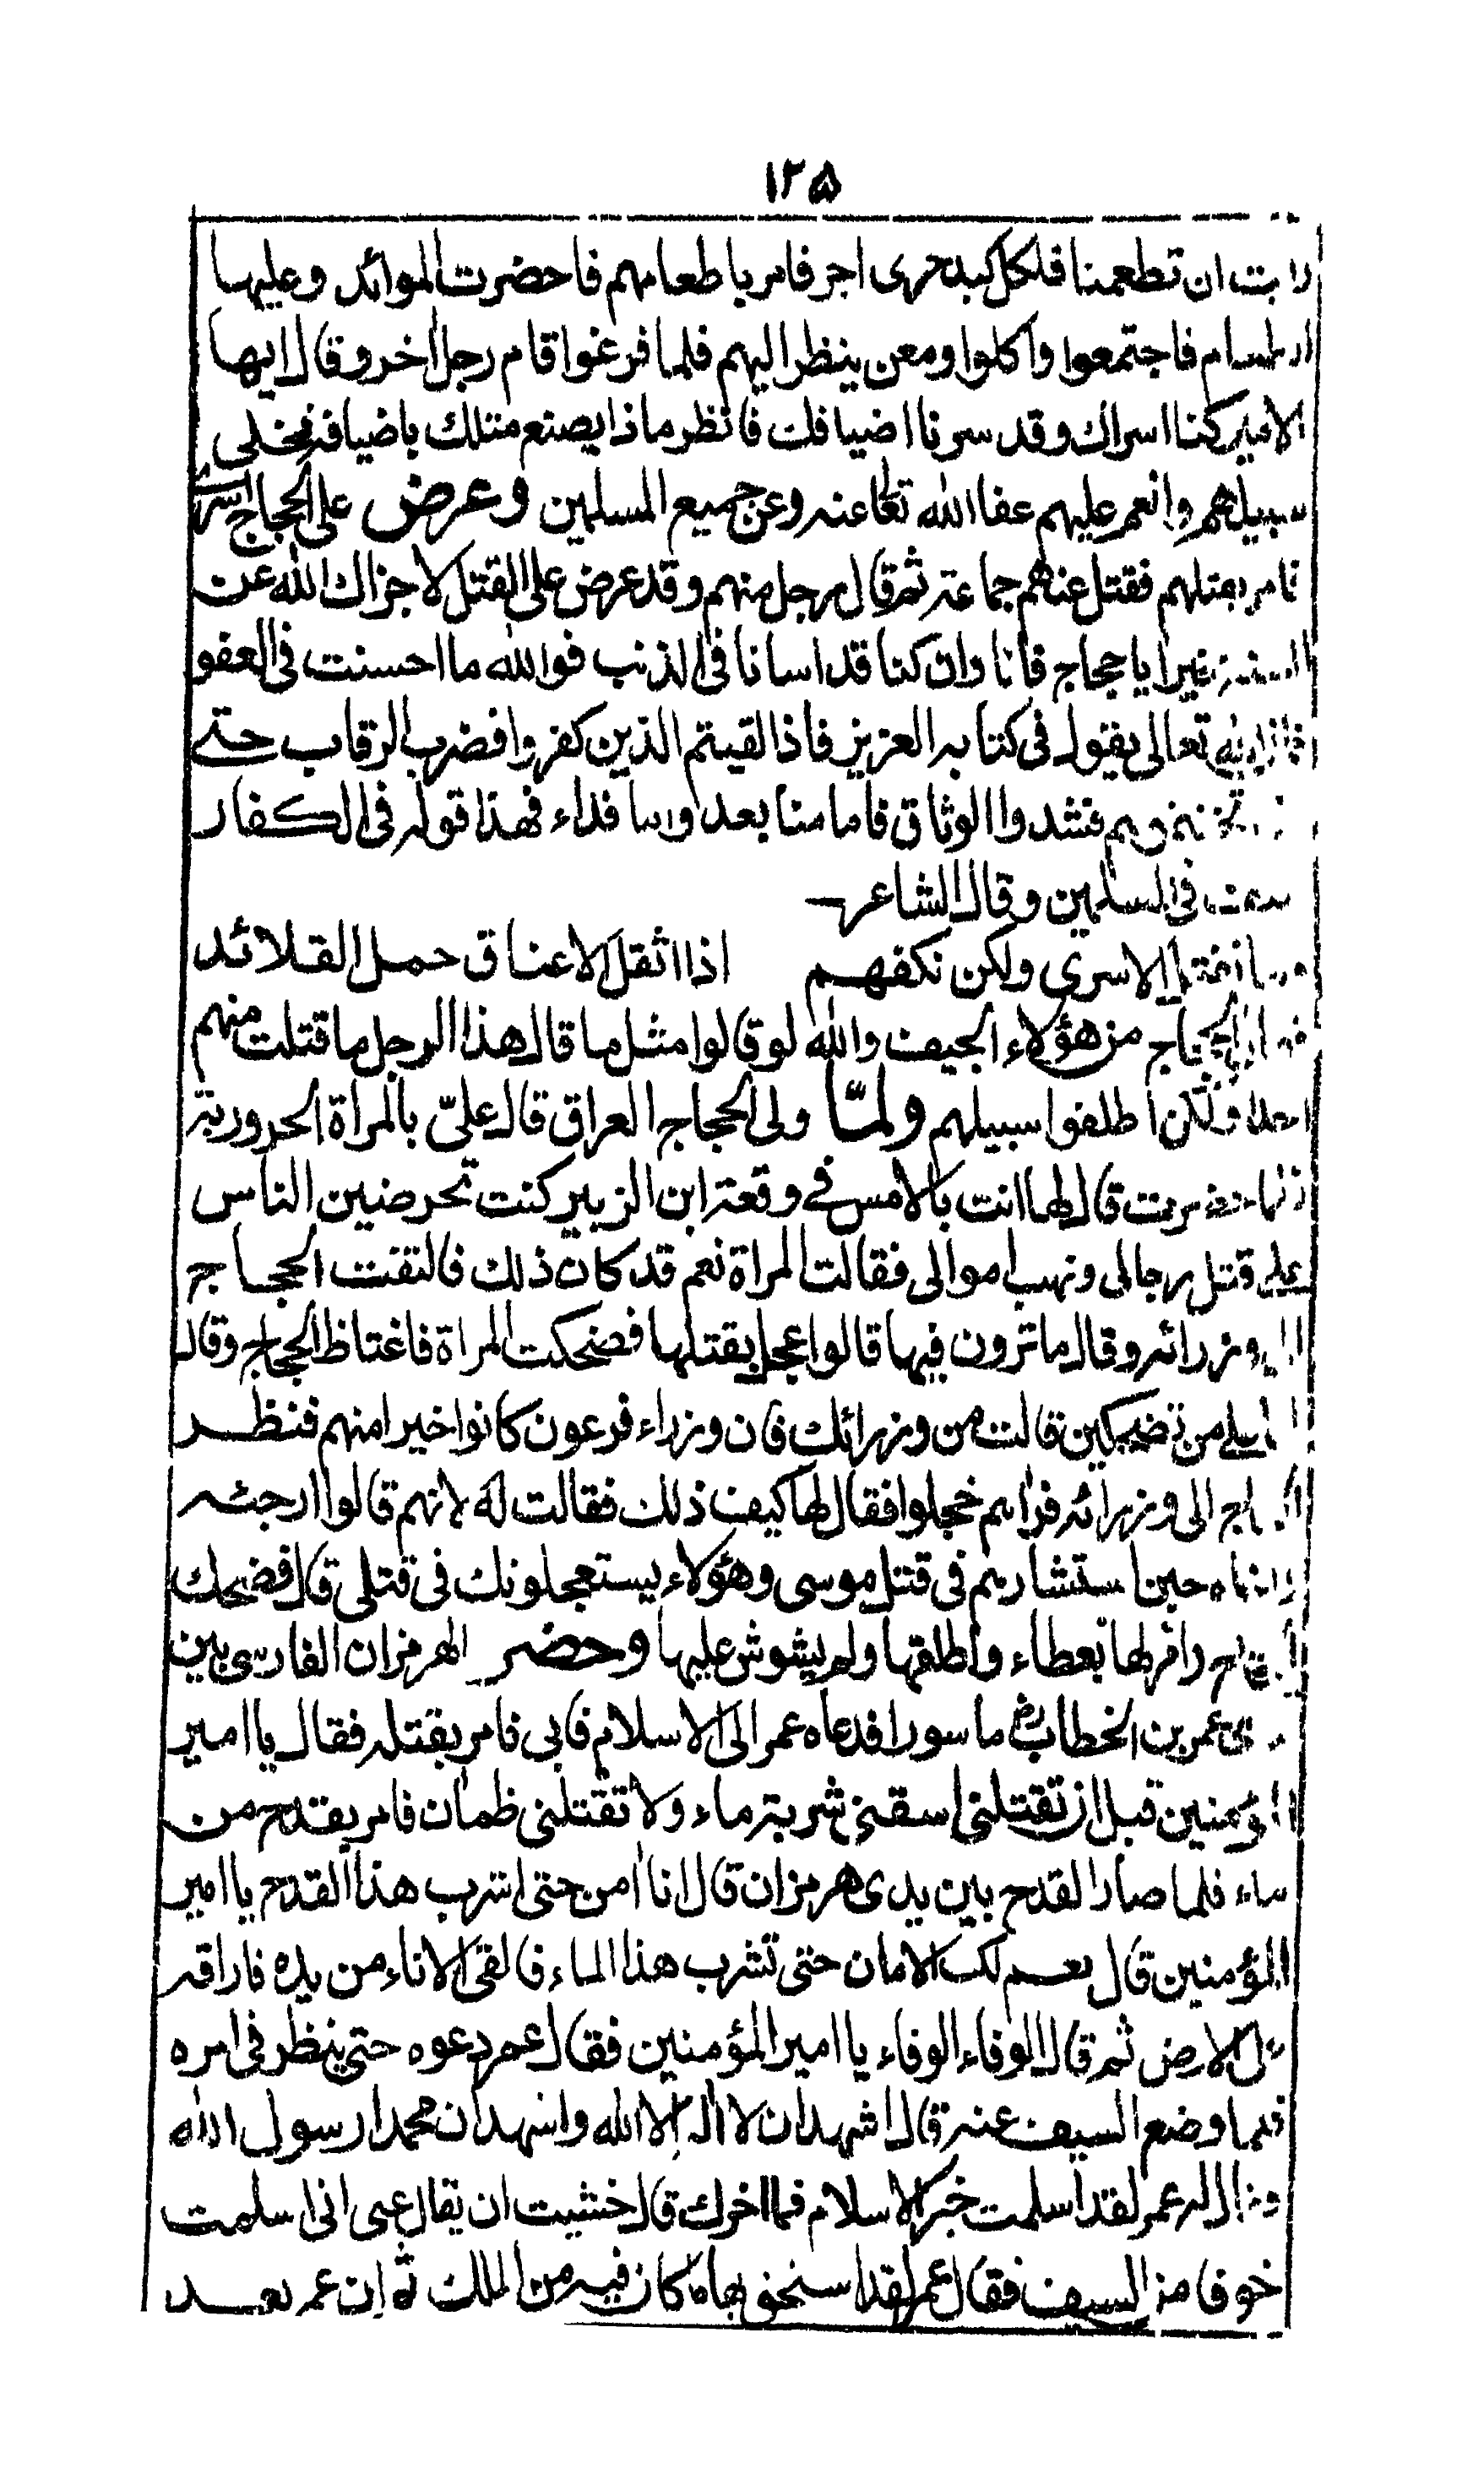 ١٢٥
رايت ان تطعمنا فلكل كبد حرى اجر فامر باطعامهم فاحضرت الموائد وعليها
الطعام فاجتمعوا واكلوا ومعن ينظر اليهم فلما فرغوا قام رجل اخر وقال ايها
الامير كنا اسراك وقد صرنا اضيافك فانظر ماذا يصنع مثلك باضيافه فخلى
سبيلهم وانعم عليهم عفا الله تعالى عنه وعن جميع المسلمين وعرض على الحجاج اسرى
فامر بقتلهم فقتل منهم جماعة ثم قال رجل منهم وقد عرض على القتل لا جزاك الله عن
السنة خيرا يا حجاج فانا وان كنا قد اسانا فى الذنب فوالله ما احسنت فى العفو
فان الله تعالى يقول فى كتابه العزيز فاذا لقيتم الذين كفروا فضرب الرقاب حتى
اذا اثخنتموهم فشدوا الوثاق فاما منا بعد واما فداء فهذا قوله فى الكفار
فى المسلمين وقال الشاعر
وما نقتل الاسرى ولكن نكفهم اذا اثقل الاعناق حمل القلائد
فقال الحجاج من هؤلاء الجيف والله لو قالوا مثل ما قال هذا الرجل ما قتلت منهم
احدا ولكن اطلقوا سبيلهم ولمّا ولى الحجاج العراق قال علىّ بالمراة الحرورية
فلما حضرت قال لها انت بالامس فى وقعة ابن الزبير كنت تحرضين الناس
على قتل رجالى ونهب اموالى فقالت المراة نعم قد كان ذلك فالتفت الحجاج
الى وزرائه وقال ما ترون فيها قالوا عجل بقتلها فضحكت المراة فاغتاظ الحجاج وقال
لها من تضحكين قالت من وزرائك فان وزراء فرعون كانوا خيرا منهم فنظر
الحجاج الى وزرائه فراهم خجلوا فقال لها كيف ذلك فقالت له لانهم قالوا ارجئه
واخاه حين استشارهم فى قتل موسى وهؤلاء يستعجلونك فى قتلى قال فضحك
الحجاج وامر لها بعطاء واطلقها ولم يشوش عليها وحضر الهرمزان الفارسى بين
يدى عمر بن الخطاب رض ماسورا فدعاه عمر الى الاسلام فابى فامر بقتله فقال يا امير
المؤمنين قبل ان تقتلنى اسقنى شربة ماء ولا تقتلنى ظمان فامر بقدح من
ماء فلما صار القدح بين يدى هرمزان قال انا امن حتى اشرب هذا القدح يا امير
المؤمنين قال نعم لك الامان حتى تشرب هذا الماء فالقى الاناء من يده فاراقه
على الارض ثم قال الوفاء الوفاء يا امير المؤمنين فقال عمر دعوه حتى ينظر فى امره
فلما وضع السيف عنه قال اشهد ان لا اله الا الله واشهد ان محمدا رسول الله
وقال له عمر لقد اسلمت خير الاسلام فما اخرك قال خشيت ان يقال عنى انى اسلمت
خوفا من السيف فقال عمر لقد استحق بها ما كان فيه من الملك ثم ان عمر بعد